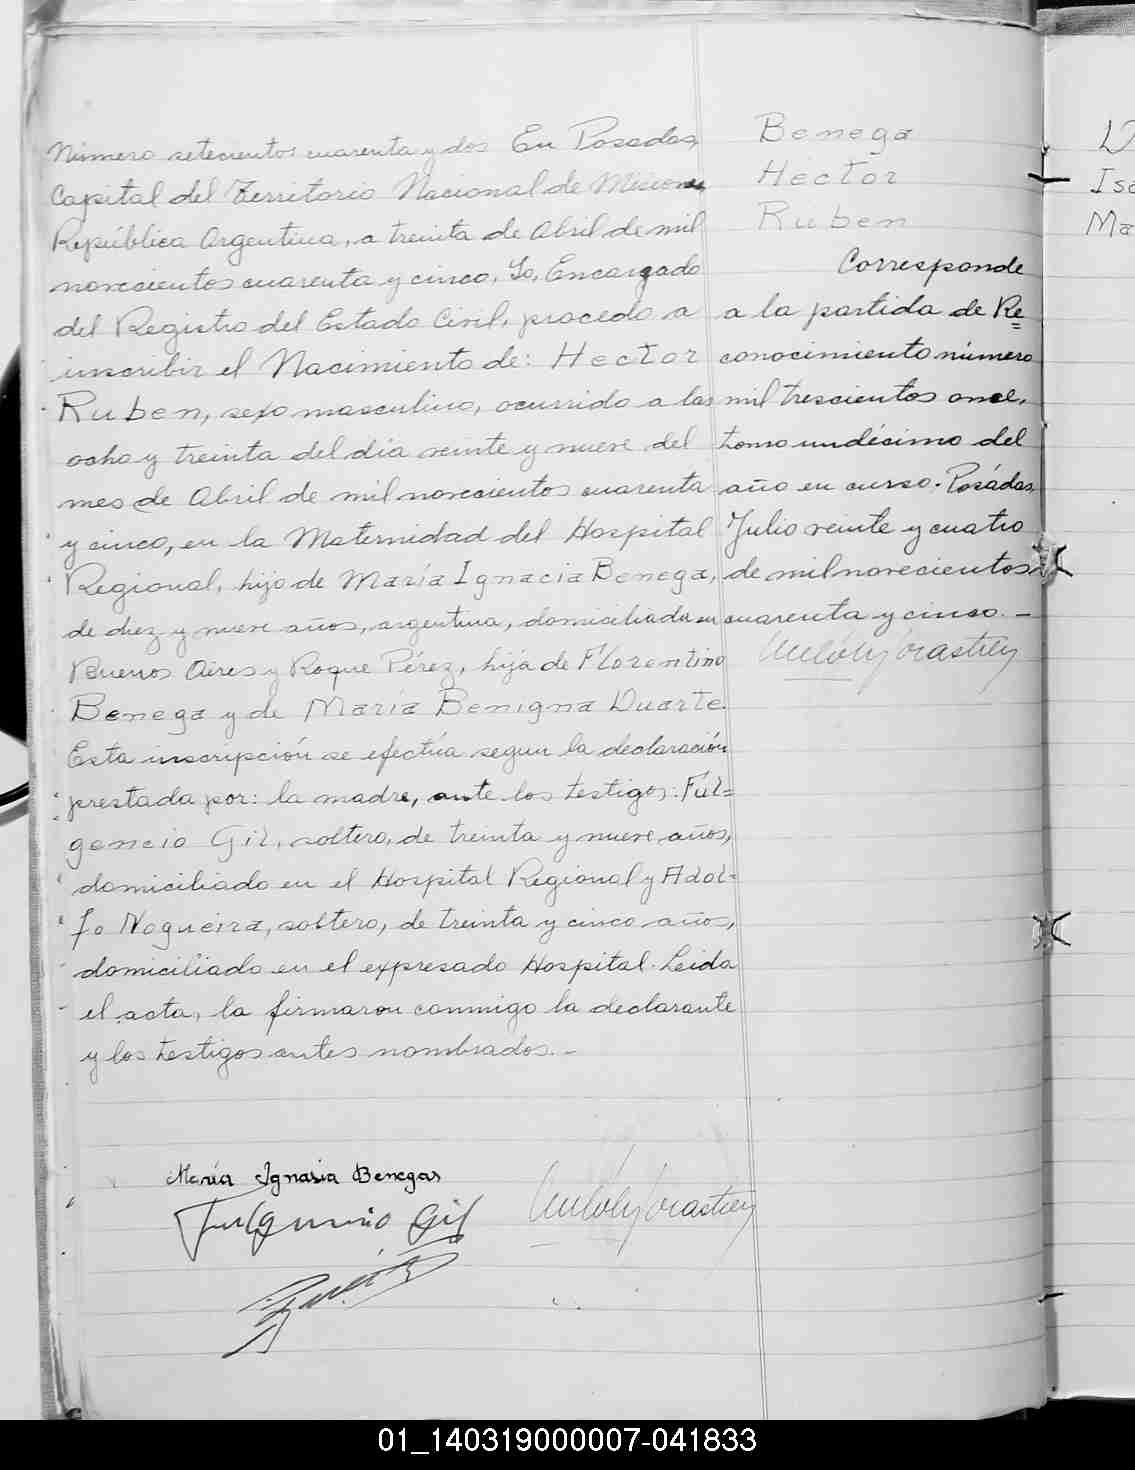 Número setecientos cuarenta y dos En Posadas,
Capital del Territorio Nacional de Misiones
República Argentina, a treinta de Abril de mil
novecientos cuarenta y cinco, Yo, Encargado
del Registro del Estado Civil, procedo a
inscribir el Nacimiento de: Hector
Ruben, sexo masculino, ocurrido a las
ocho y treinta del día veinte y nueve del
mes de Abril de mil novecientos cuarenta
y cinco, en la Maternidad del Hospital
Regional, hijo de María Ignacia Benega,
de diez y nueve años, argentina, domiciliada en
Buenos Aires y Roque Pérez, hija de Florentino
Benega y de María Benigna Duarte.
Esta inscripción se efectúa segun la declaración
prestada por: la madre, ante los testigos: Ful=
gencio Gil, soltero, de treinta y nueve años,
domiciliado en el Hospital Regional y Adol=
fo Nogueira, soltero, de treinta y cinco años,
domiciliado en el expresado Hospital. Leida
el acta, la firmaron conmigo la declarante
y los testigos antes nombrados.-
María Ignasia Benegas
Fulguncio Gil
Benega
Hector
Ruben
Corresponde
a la partida de Re=
conocimiento número
mil trescientos once,
tomo undécimo del
año en curso. Posádas,
Julio veinte y cuatro
de mil novecientos
cuarenta y cinco.-
D
Isa
Ma
01_140319000007-041833